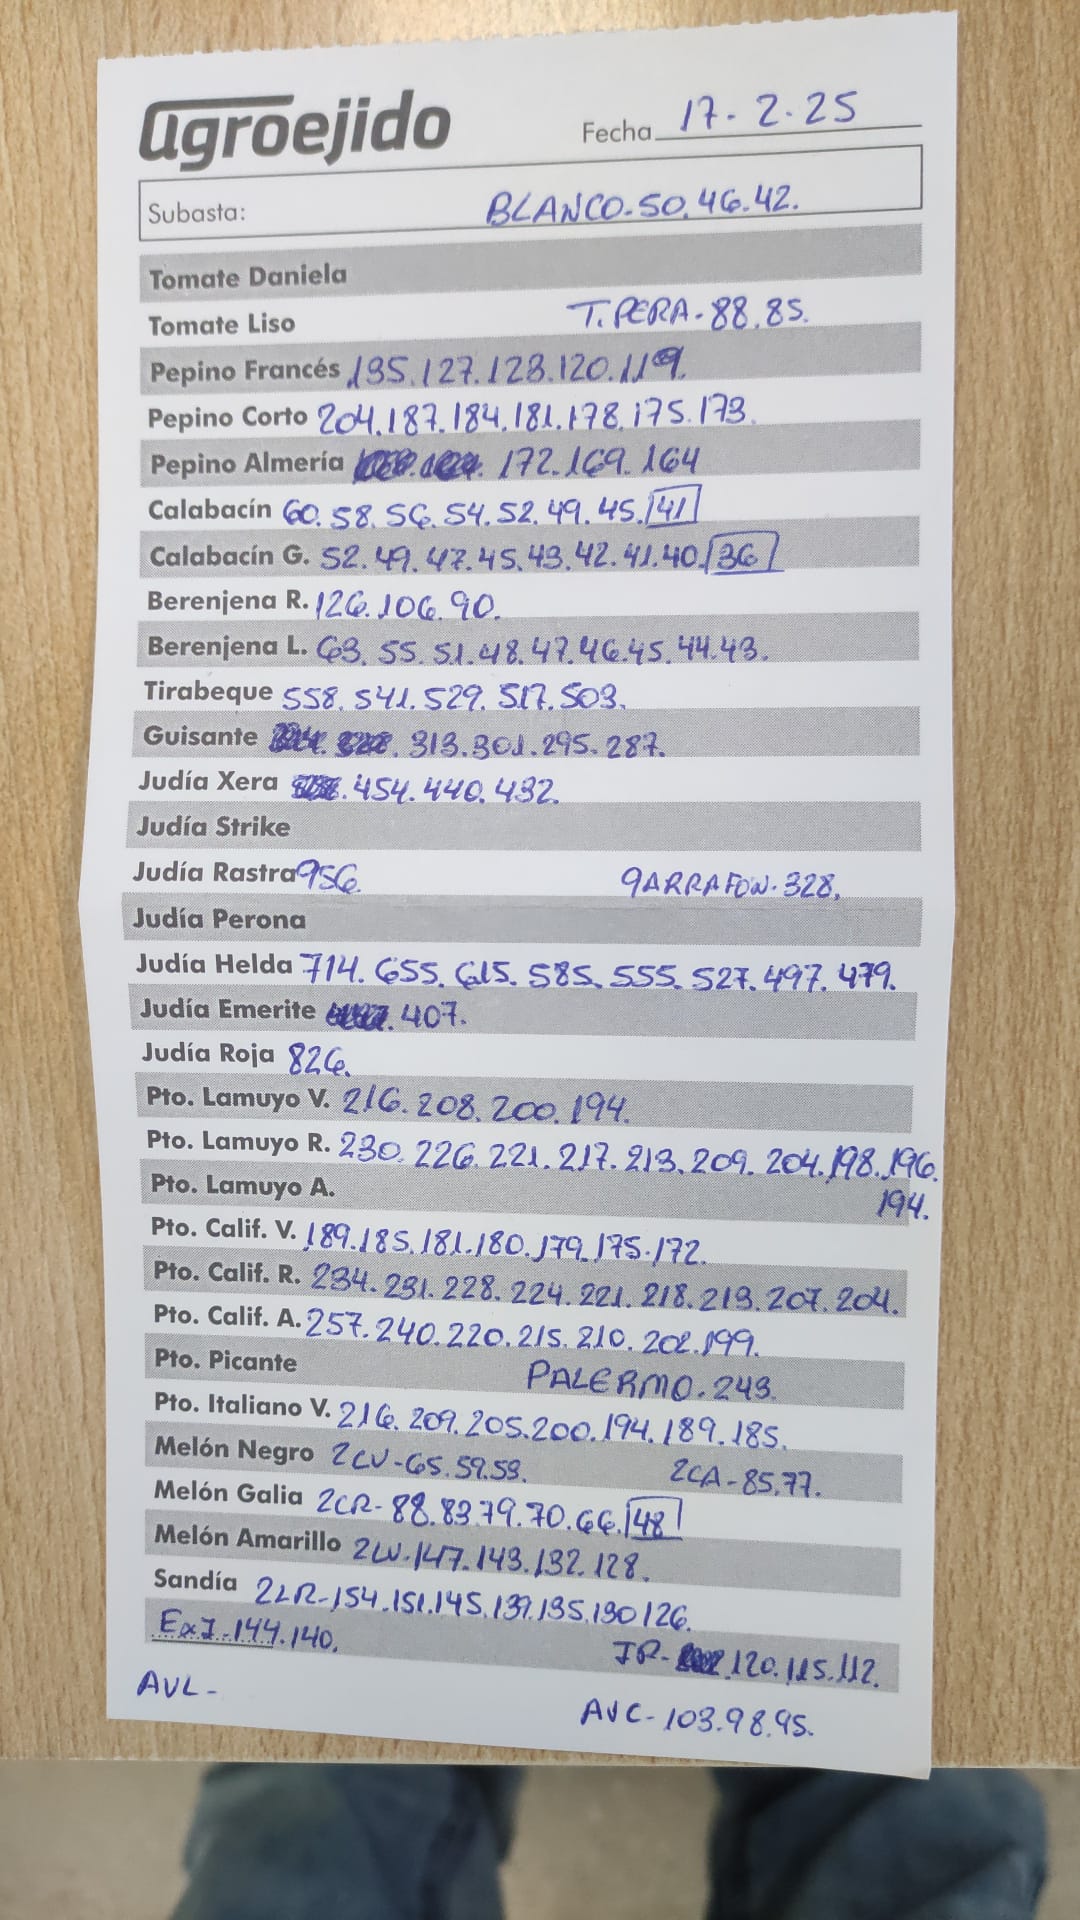 agroejido
Fecha 17.2.25
Subasta: BLANCO-50.46.42.
Tomate Daniela
Tomate Liso T.PERA-88.85.
Pepino Francés 135.127.123.120.119.
Pepino Corto 204.187.184.181.178.175.173.
Pepino Almería 172.169.164
Calabacín 60.58.56.54.52.49.45.41
Calabacín G. 52.49.47.45.43.42.41.40.36
Berenjena R. 126.106.90.
Berenjena L. 63.55.51.48.47.46.45.44.43.
Tirabeque 558.541.529.517.503.
Guisante 313.301.295.287.
Judía Xera 454.440.432.
Judía Strike
Judía Rastra 956. GARRAFON-328.
Judía Perona
Judía Helda 714.655.615.585.555.527.497.479.
Judía Emerite 407.
Judía Roja 826.
Pto. Lamuyo V. 216.208.200.194.
Pto. Lamuyo R. 230.226.221.217.213.209.204.198.196.
Pto. Lamuyo A. 194.
Pto. Calif. V. 189.185.181.180.179.175.172.
Pto. Calif. R. 234.231.228.224.221.218.213.207.204.
Pto. Calif. A. 257.240.220.215.210.202.199.
Pto. Picante PALERMO.243.
Pto. Italiano V. 216.209.205.200.194.189.185.
Melón Negro 2CV-65.59.53. 2CA-85.77.
Melón Galia 2CR-88.83.79.70.66.48
Melón Amarillo 2LV-147.143.132.128.
Sandía 2LR-154.151.145.139.135.130.126.
144.140. 120.115.112.
AVL-
AVC-103.98.95.